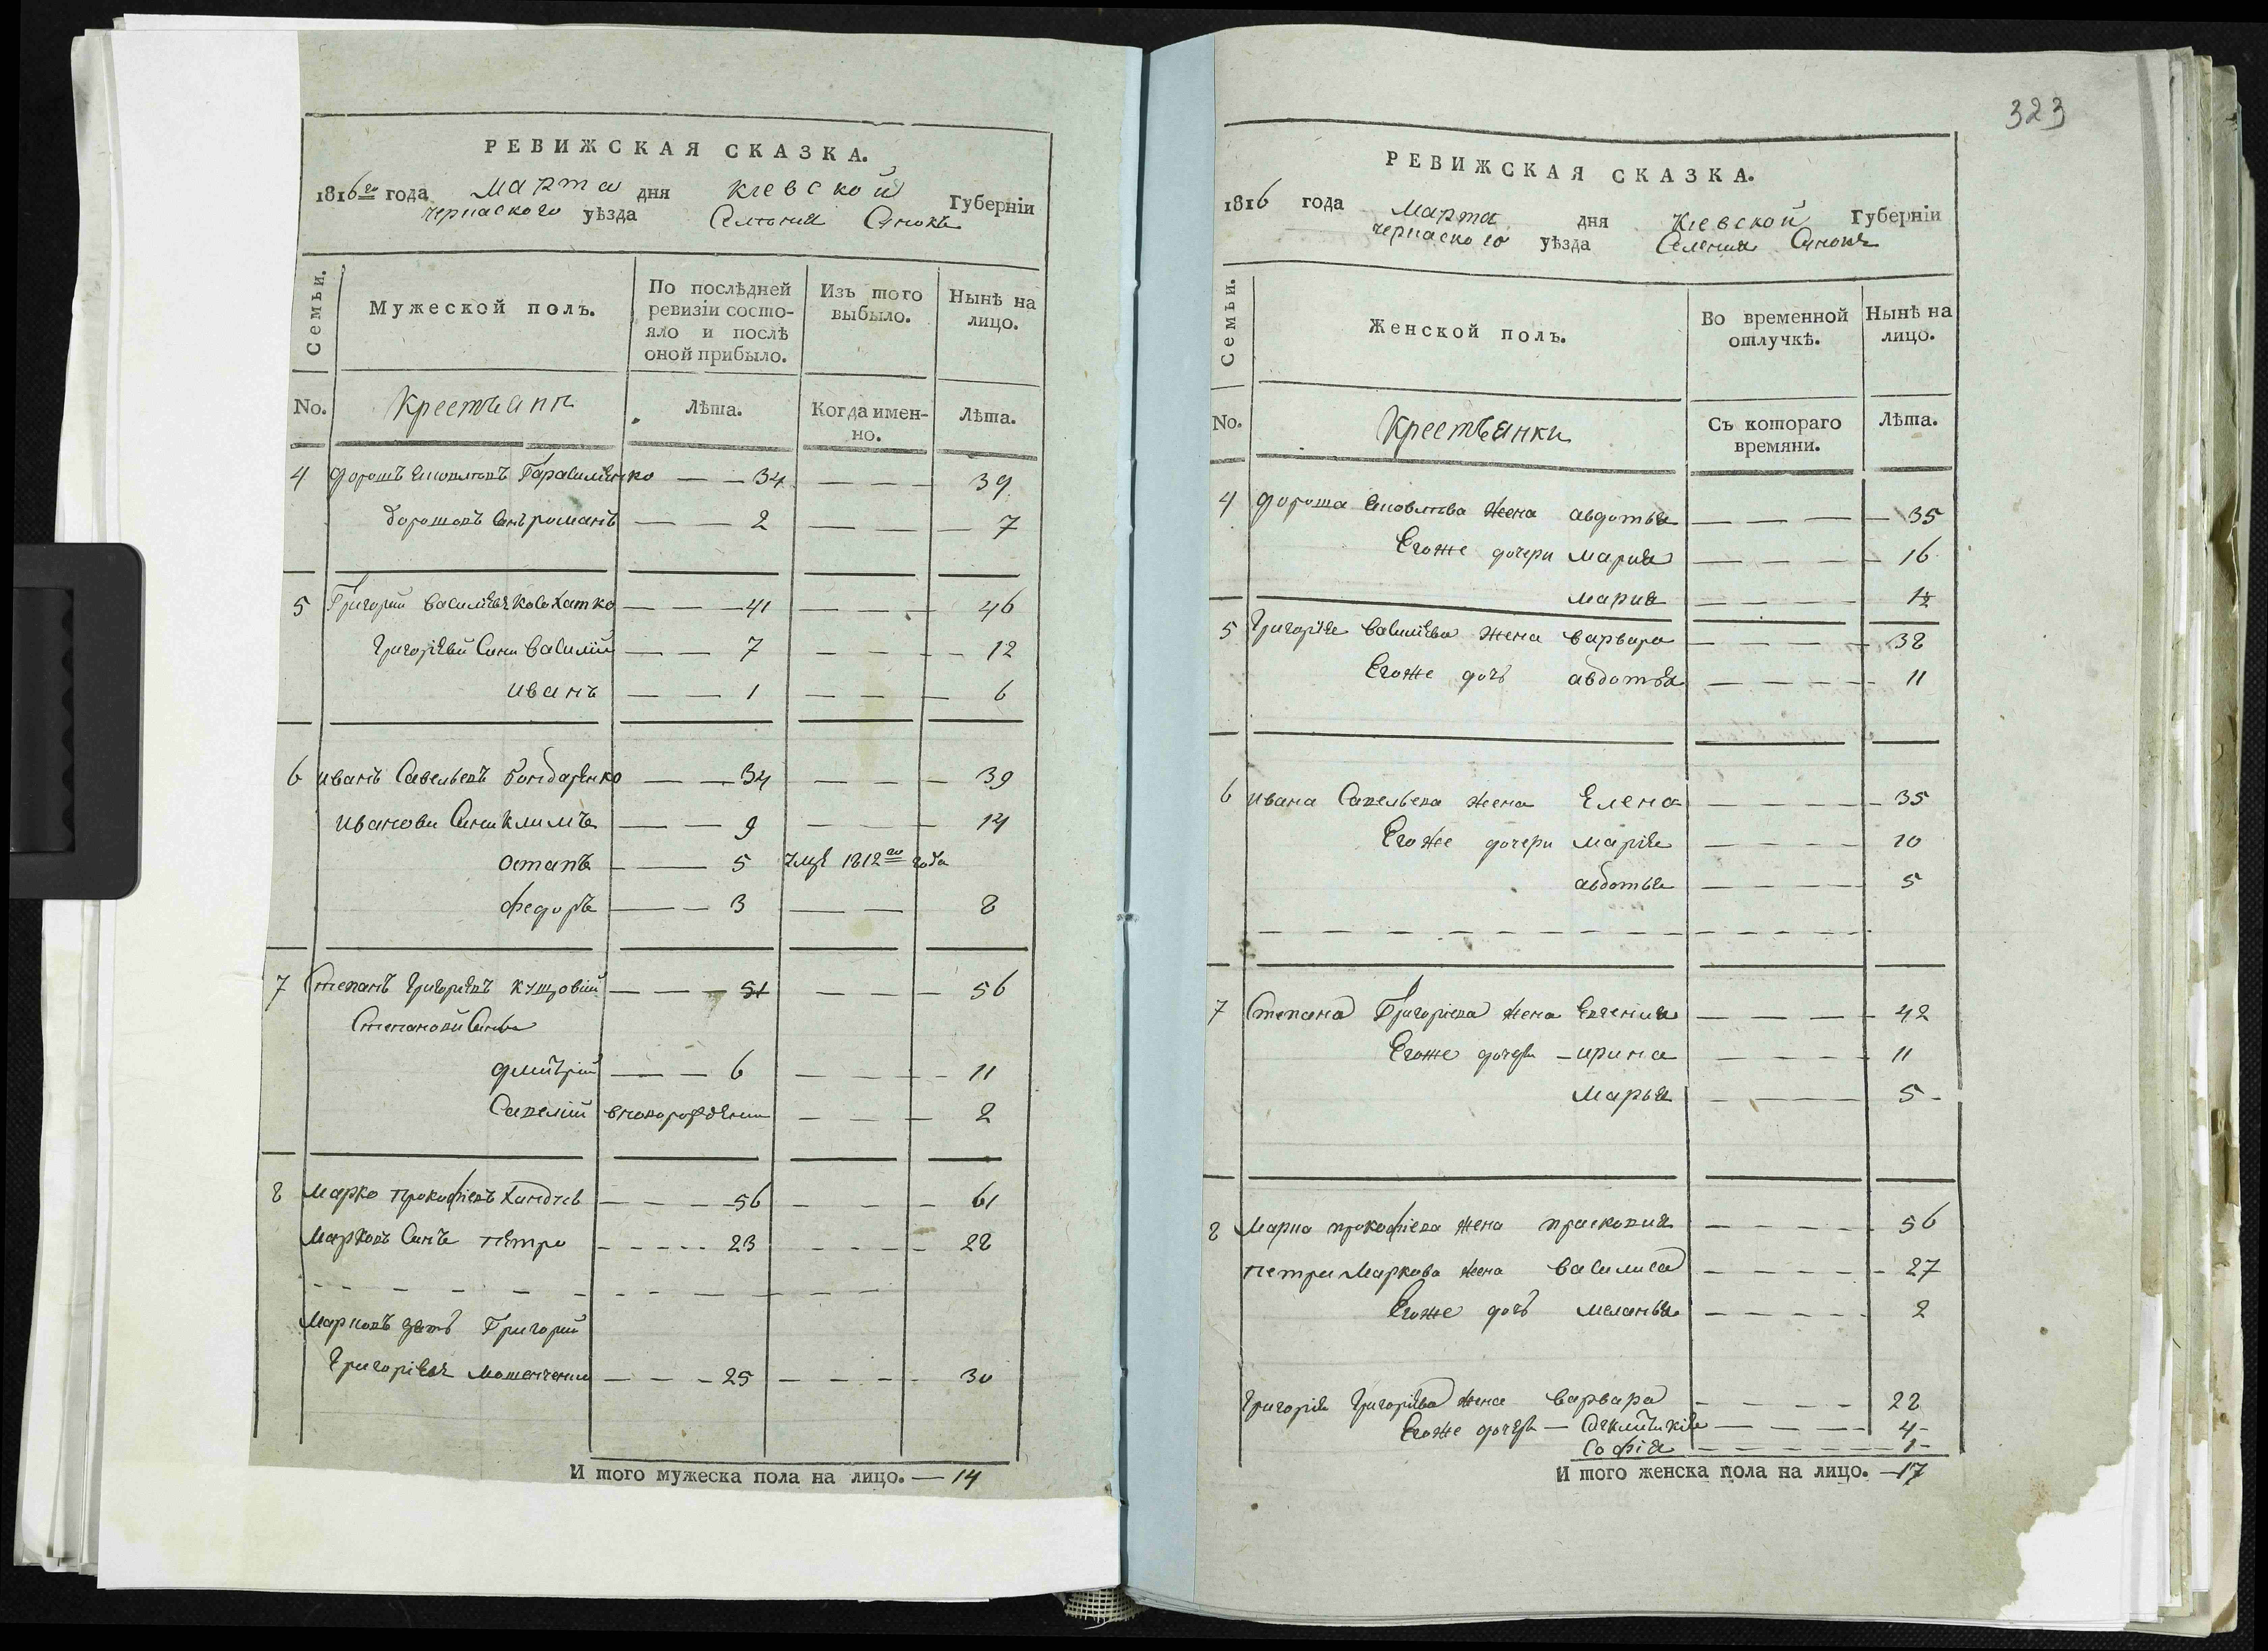 РЕВИЖСКАЯ СКАЗКА.
1816го года Марта дня Киевской Губернии
черкаского уѣзда Селения
Семьи. Мужеской полъ. По послѣдней ревизіи состояло и послѣ оной прибыло. Изъ того выбыло. Нынѣ на лицо.
No. Крестьяни Лѣта. Когда именно. Лѣта.
4 Дорошъ Яковлевъ Гарасименко — — 34 — — — 39
Дорошовъ Синъ романъ — — 2 — — — 7
5 Григорий Василіевъ — — — 41 — — — 46
Григоріеви Сини Василій — — 7 — — — 12
иванъ — — 1 — — — 6
6 иванъ Савельевъ Бондаренко — — 34 — — — 39
ивановы Сини климъ — — 9 — — — 14
остапъ — — 5 умре 1812го года
федоръ — — 3 — — 8
7 Степанъ Григориевъ — — — 51 — — — 56
Степанови Синове
дмитрій — — 6 — — — 11
Савелій вноворожденни — — — 2
8 Марко прокофіевъ — — — 56 — — — 61
Марковъ Синъ петро — — — — 23 — — — — 28
Марковъ зять Григорий
Григоріевъ — — — 25 — — — — 30
И того мужеска пола на лицо. — 14
323
РЕВИЖСКАЯ СКАЗКА.
1816 года Марта дня Киевской Губерніи
черкаского уѣзда Селения
Семьи. Женской полъ. Во временной отлучкѣ. Нынѣ на лицо.
No. Крестьянки Съ котораго времяни. Лѣта.
4 Дороша Яковлева Жена авдотья — — — — 35
Егоже дочери мария — — — — 16
мария — — — — 1½
5 Григорія Василіева жена варвара — — — — 38
Егоже дочь авдотья — — — — 11
6 ивана Савельева жена Елена — — — — 35
Егоже дочери марія — — — — 10
авдотья — — — — 5
7 Степана Григоріева жена Евгения — — — — 42
Егоже дочери — ирина — — — — 11
Марья — — — — 5 -
8 Марка прокофіева жена прасковия — — — — 56
петра Маркова жена василиса — — — — 27
Егоже дочь меланья — — — — 2
Григорія Григоріева жена варвара — — — — 22
Егоже дочери — — — — — 4 -
Софія — — — — 1 -
И того женска пола на лицо. — 17